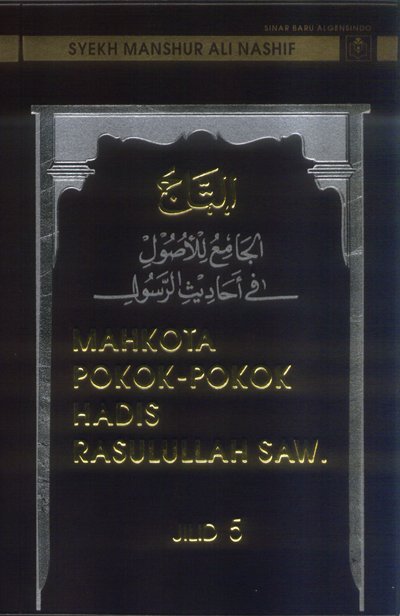 SINAR BARU ALGENSINDO
SYEKH MANSHUR ALI NASHIF
التَّاجُ
الجَامِعُ لِلْأُصُولِ
فِي أَحَادِيْثِ الرَّسُولِ
MAHKOTA
POKOK-POKOK
HADIS
RASULULLAH SAW.
JILID 5